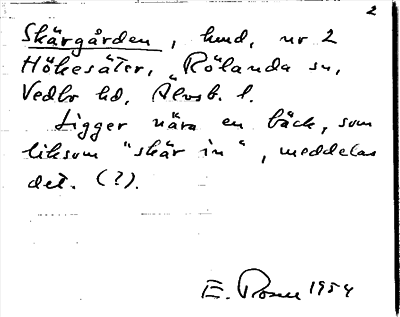 2
Skärgården, hmd, nr 2
Hökesäter, Rölanda sn,
Vedbo hd, Älvsb. l.
Ligger nära en bäck, som
liksom "skär in", meddelas
det. (?).
E. Rosell 1954